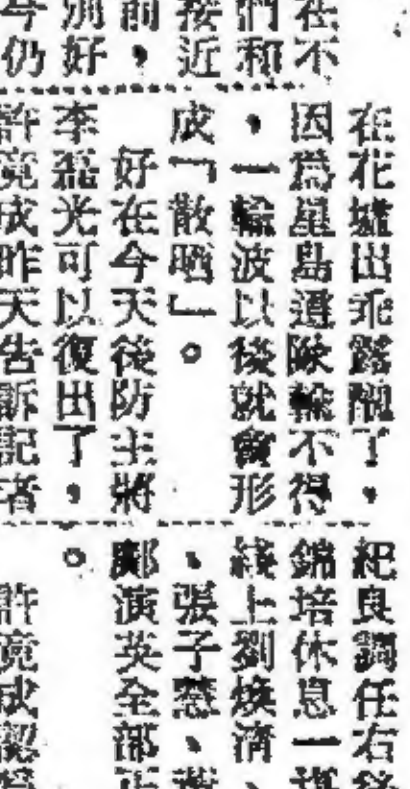 在不
們和
接近
前，
別好
今仍
在花墟出乖露醜了，
因為星島這隊輸不得
，一輸波以後就會形
成「散晒」。
好在今天後防主將
李磊光可以復出了，
許竟成昨天告訴記者
紀良調任右
錦培休息一
綫上劉煥清、
、張子慧、
鄺演英全部
。
許竟成認